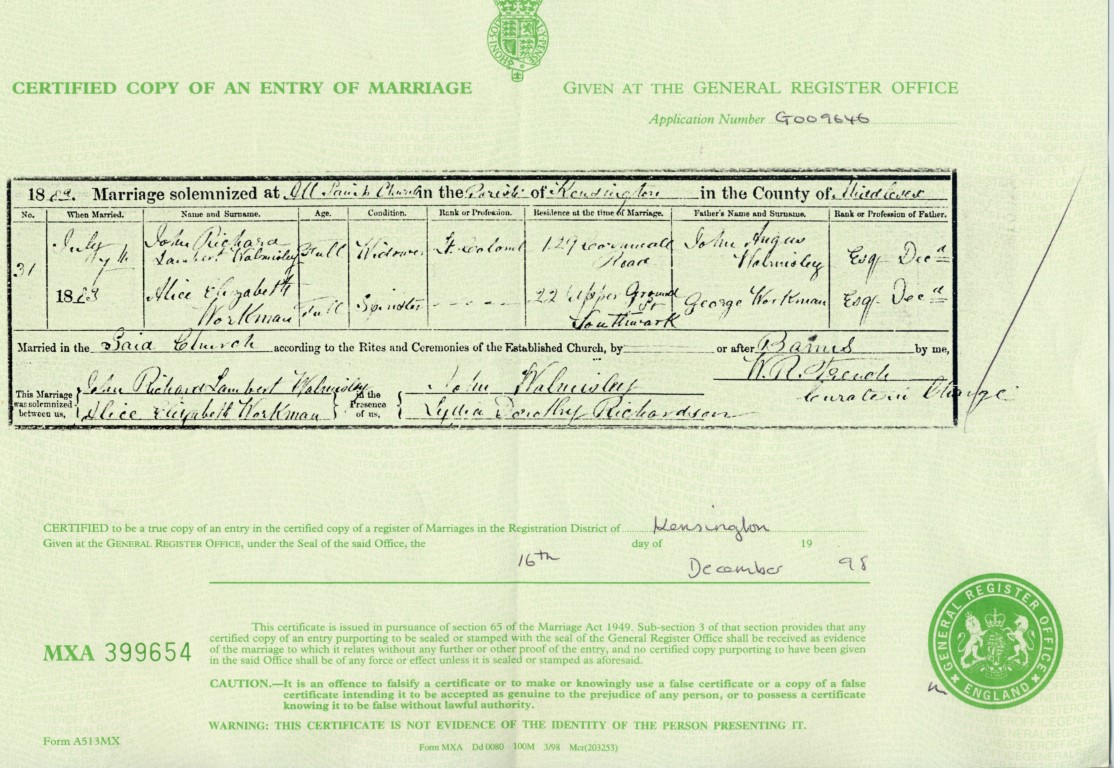 CERTIFIED COPY OF AN ENTRY OF MARRIAGE
GIVEN AT THE GENERAL REGISTER OFFICE
Application Number G009646
18 Marriage solemnized at All Saints Church in the Parish of Kensington in the County of Middlesex
No. When Married. Name and Surname. Age. Condition. Rank or Profession. Residence at the time of Marriage. Father's Name and Surname. Rank or Profession of Father.
31 July John Richard Lambert Walmisley Full Widower Lt Colonel 129 Cornwall Road John Angus Walmisley Esq Decd
1883 Alice Elizabeth Workman Full Spinster 22 Upper Ground St Southwark George Workman Esq Decd
Married in the Said Church according to the Rites and Ceremonies of the Established Church, by or after Banns by me,
W.R. French
Curate in Charge
This Marriage was solemnized between us, John Richard Lambert Walmisley in the Presence of us, John Walmisley
Alice Elizabeth Workman Lydia Dorothy Richardson
CERTIFIED to be a true copy of an entry in the certified copy of a register of Marriages in the Registration District of Kensington
Given at the GENERAL REGISTER OFFICE, under the Seal of the said Office, the 16th day of December 19 98
This certificate is issued in pursuance of section 65 of the Marriage Act 1949. Sub-section 3 of that section provides that any
certified copy of an entry purporting to be sealed or stamped with the seal of the General Register Office shall be received as evidence
of the marriage to which it relates without any further or other proof of the entry, and no certified copy purporting to have been given
in the said Office shall be of any force or effect unless it is sealed or stamped as aforesaid.
MXA 399654
CAUTION.—It is an offence to falsify a certificate or to make or knowingly use a false certificate or a copy of a false
certificate intending it to be accepted as genuine to the prejudice of any person, or to possess a certificate
knowing it to be false without lawful authority.
WARNING: THIS CERTIFICATE IS NOT EVIDENCE OF THE IDENTITY OF THE PERSON PRESENTING IT.
GENERAL REGISTER OFFICE ENGLAND
Form A513MX
Form MXA Dd 0080 100M 3/98 Mcr(203253)